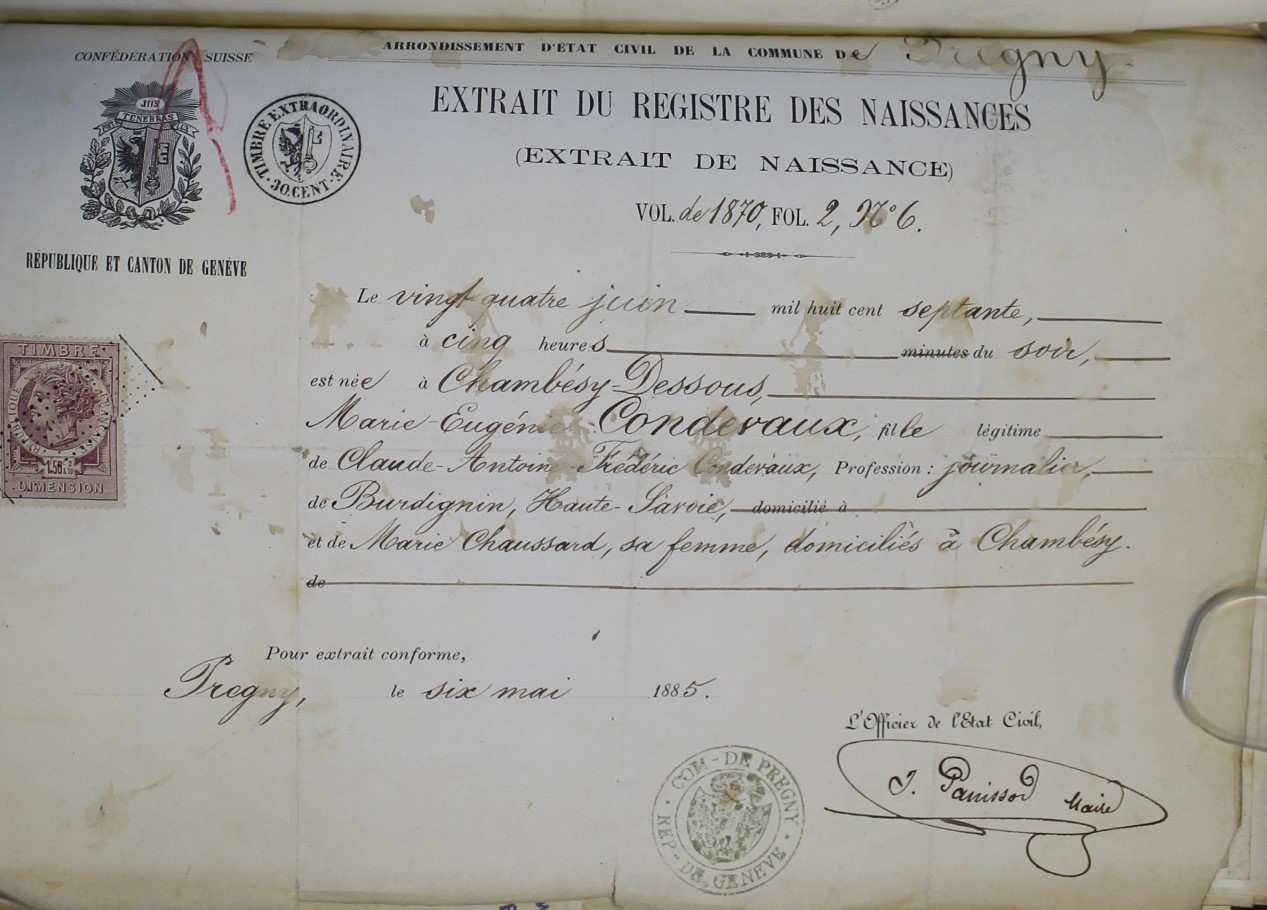 CONFÉDÉRATION SUISSE
ARRONDISSEMENT D'ÉTAT CIVIL DE LA COMMUNE DE Pregny.
JUX
TENEBRAS
TIMBRE EXTRAORDINAIRE
30. CENT.
EXTRAIT DU REGISTRE DES NAISSANCES
(EXTRAIT DE NAISSANCE)
VOL. de 1870, FOL. 2, N° 6.
RÉPUBLIQUE ET CANTON DE GENÈVE
Le vingt quatre juin mil huit cent septante,
à cinq heures minutes du soir,
est née à Chambésy-Dessous,
Marie-Eugénie Condévaux, fille légitime
de Claude-Antoine-Frédéric Condevaux, Profession : journalier,
de Burdignin, Haute-Savoie, domicilié à
et de Marie Chaussard, sa femme, domiciliés à Chambésy.
de
TIMBRE
DIMENSION
Pour extrait conforme,
Pregny, le six mai 1885.
L'Officier de l'Etat Civil,
J. Panissod Maire
COM - DE PREGNY
REP - DE GENEVE